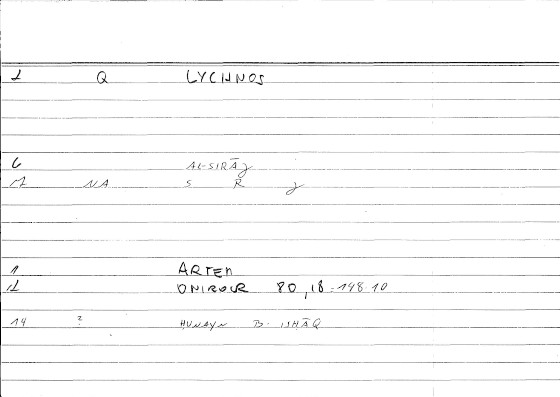 1 Q LYCHNOS
6 AL-SIRĀJ
11 NA S R J
1 ARTEM
11 ONIROCR 80,18:148.10
14 ? HUNAYN B. ISHĀQ